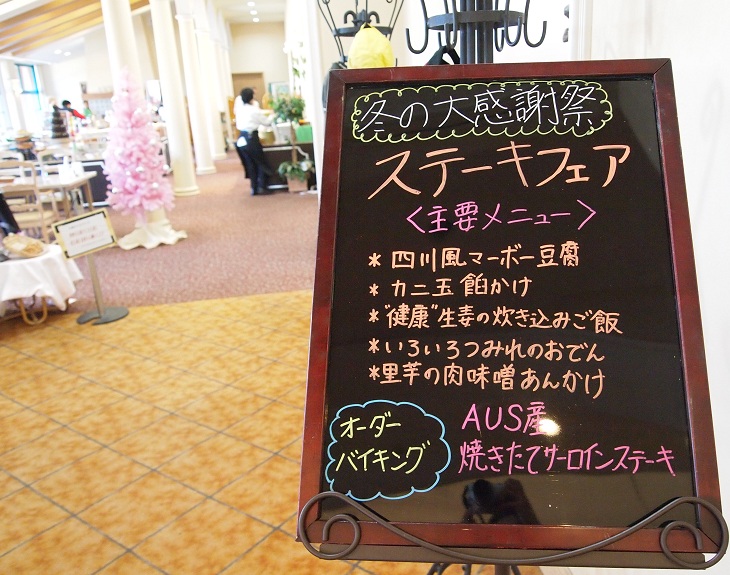 冬の大感謝祭
ステーキフェア
〈主要メニュー〉
* 四川風マーボー豆腐
* カニ玉 餡かけ
* "健康"生姜の炊き込みご飯
* いろいろつみれのおでん
* 里芋の肉味噌あんかけ
オーダー
バイキング
AUS産
焼きたてサーロインステーキ